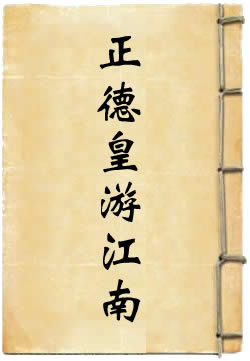 正德皇游江南